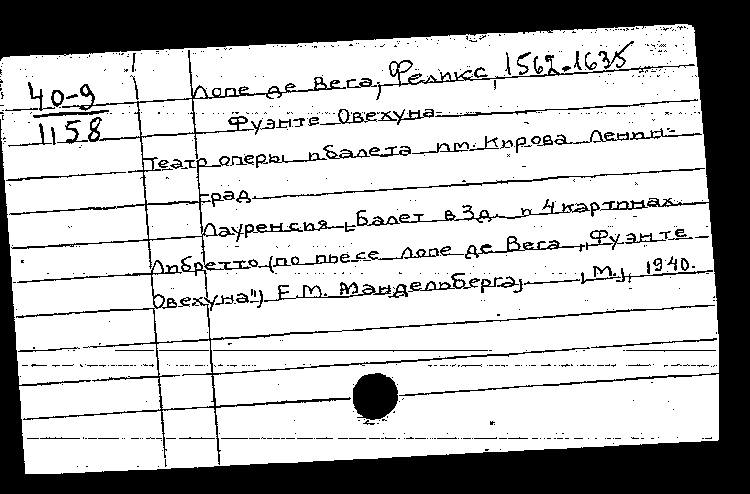 40-9
1158
Лопе де Вега, Феликс, 1562-1635
Фуэнте Овехуна.
Театр оперы и балета им. Кирова Ленин-
град.
Лауренсия, Балет в 3д. и 4 картинах.
Либретто (по пьесе Лопе де Вега „Фуэнте
Овехуна") Е.М. Мандельберга, М., 1940.